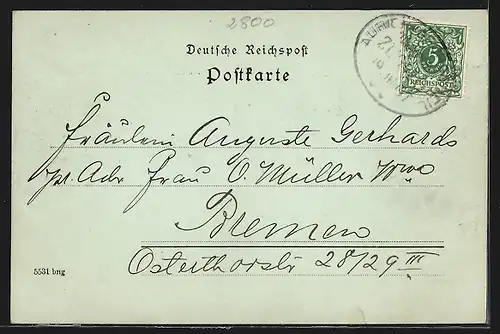 2800
Deutsche Reichspost
Postkarte
5
REICHSPOST
Fräulein Auguste Gerhards
pr. Adr Frau O. Müller Wwe
Bremen
Osterthorstr 28/29 III
5531 bng